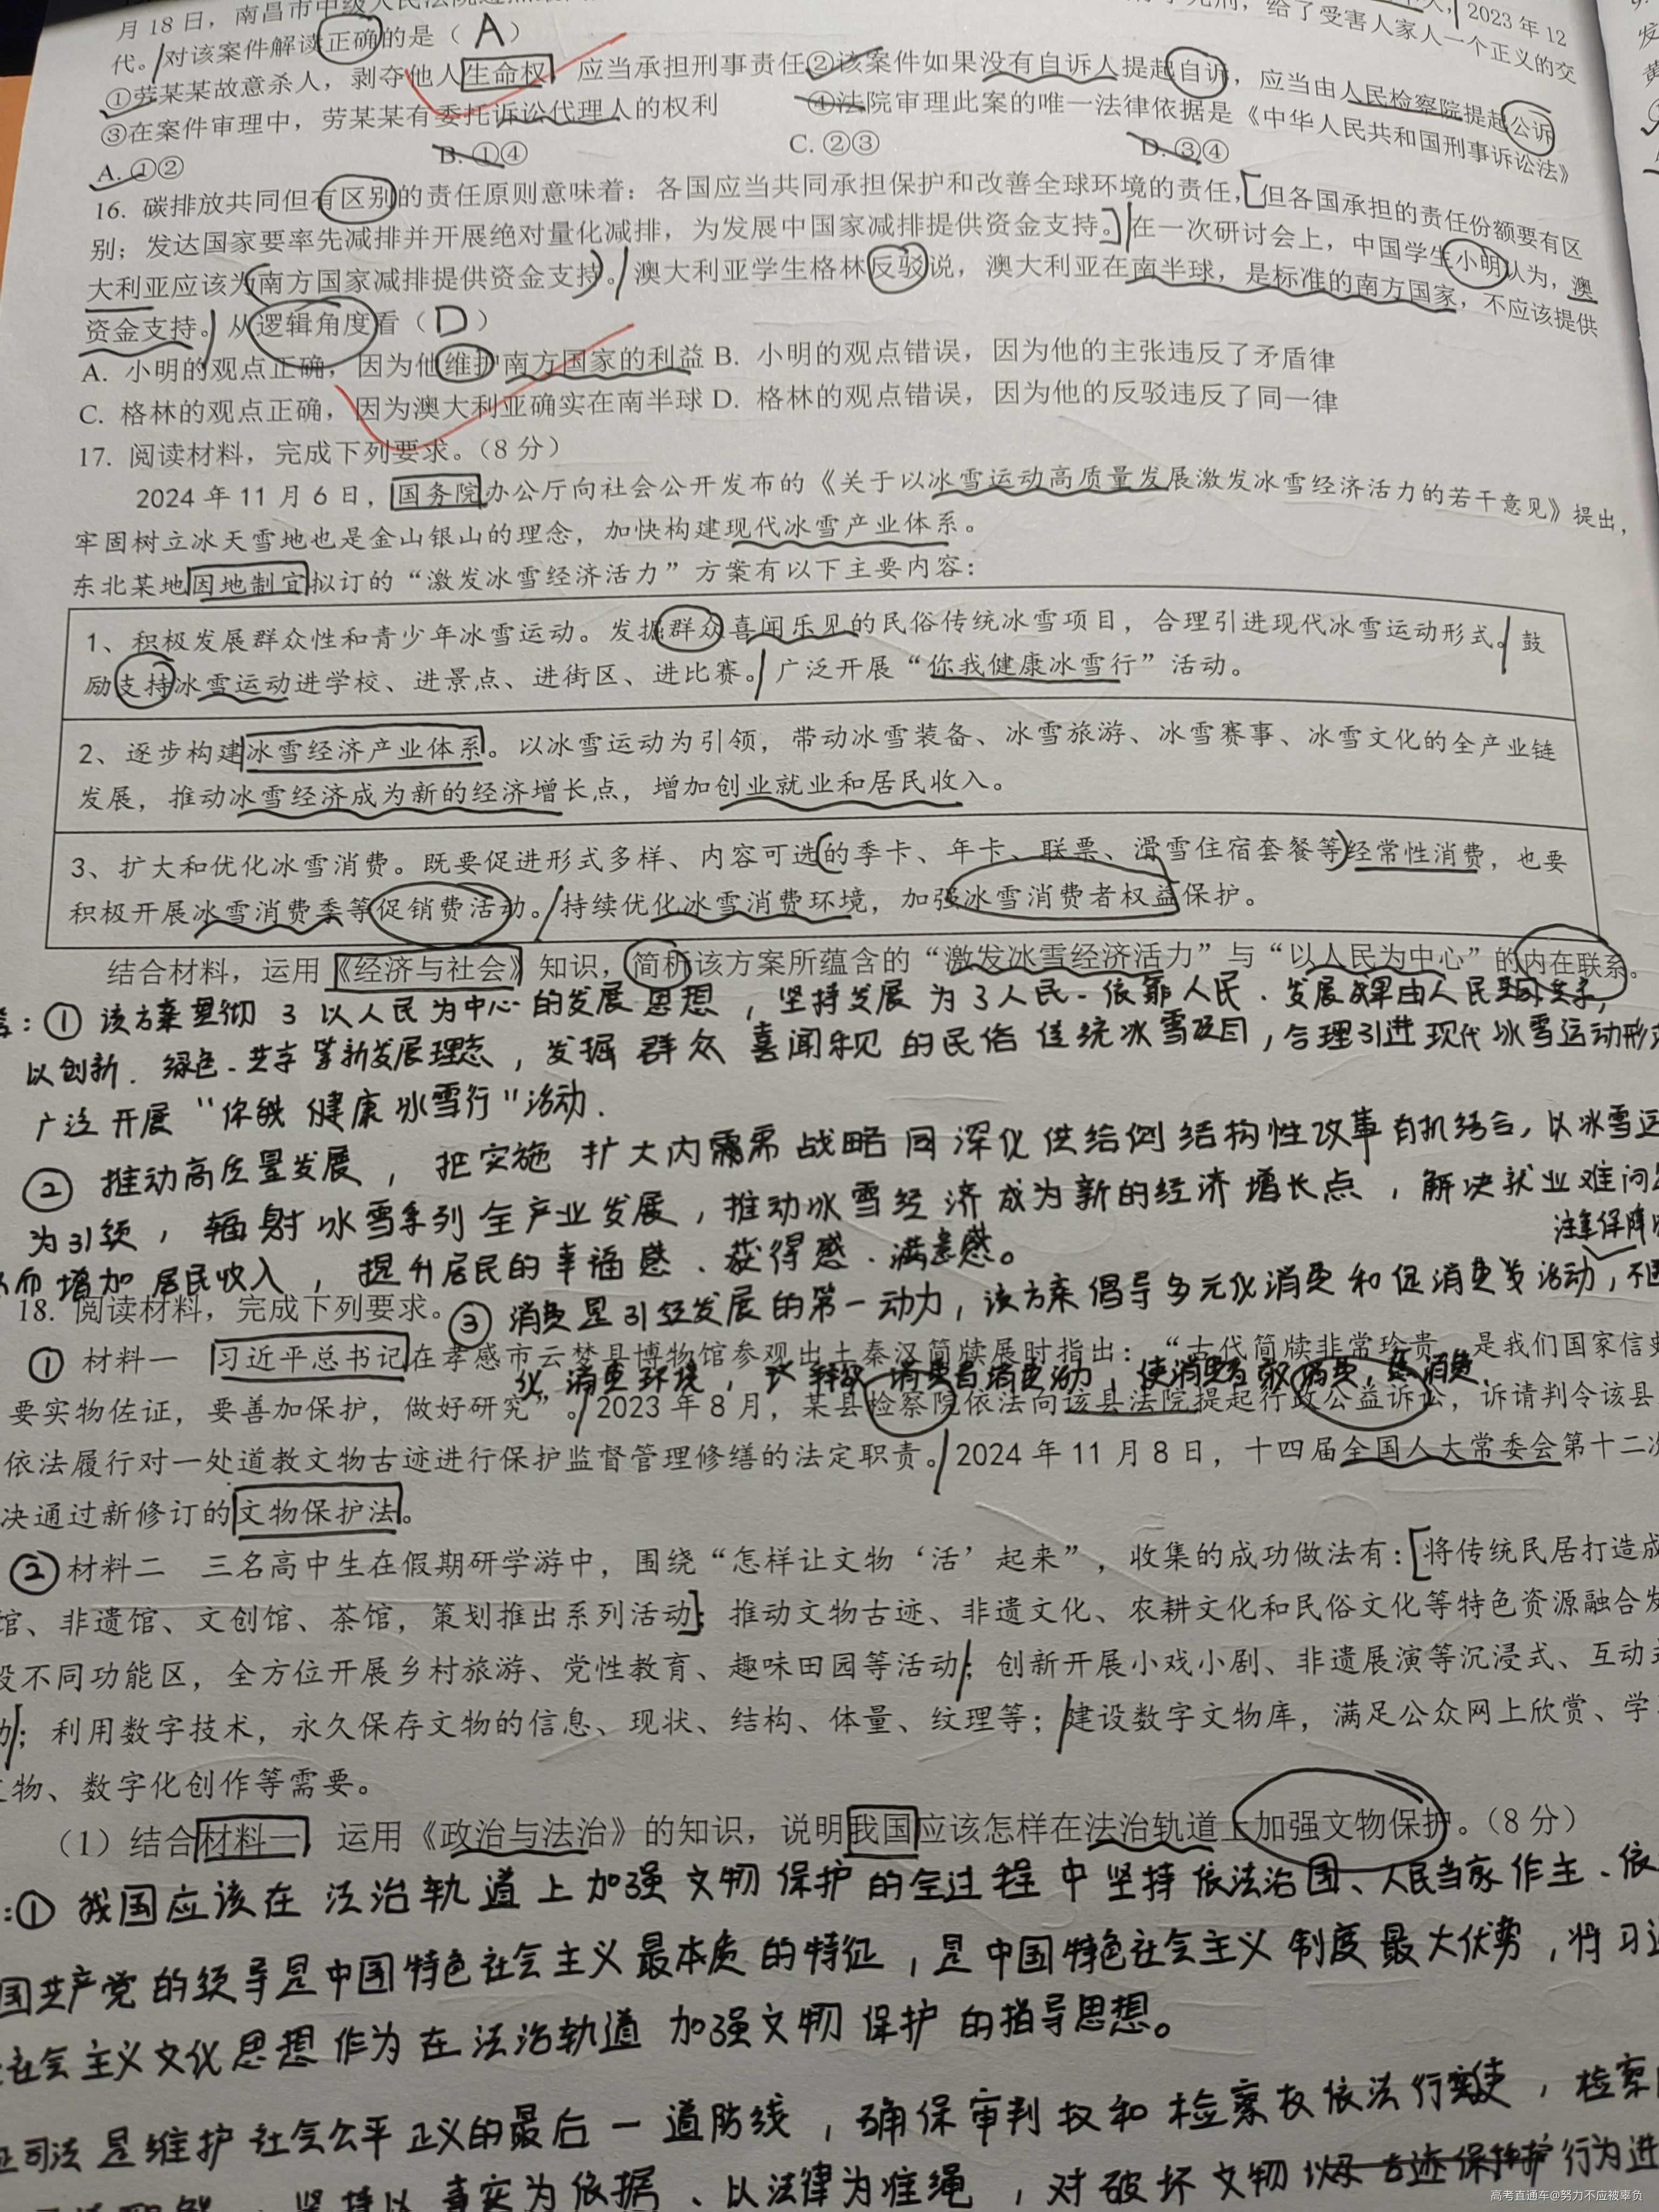 月18日，南昌市中级人民法院
死刑，给了受害人家人一个正义的交
2023年12
代。对该案件解读正确的是（ A ）
①劳某某故意杀人，剥夺他人生命权，应当承担刑事责任②该案件如果没有自诉人提起自诉，应当由人民检察院提起公诉
③在案件审理中，劳某某有委托诉讼代理人的权利 ④法院审理此案的唯一法律依据是《中华人民共和国刑事诉讼法》
A. ①② B. ①④ C. ②③ D. ③④
16. 碳排放共同但有区别的责任原则意味着：各国应当共同承担保护和改善全球环境的责任，但各国承担的责任份额要有区
别；发达国家要率先减排并开展绝对量化减排，为发展中国家减排提供资金支持。在一次研讨会上，中国学生小明认为，澳
大利亚应该为南方国家减排提供资金支持。澳大利亚学生格林反驳说，澳大利亚在南半球，是标准的南方国家，不应该提供
资金支持。从逻辑角度看（ D ）
A. 小明的观点正确，因为他维护南方国家的利益 B. 小明的观点错误，因为他的主张违反了矛盾律
C. 格林的观点正确，因为澳大利亚确实在南半球 D. 格林的观点错误，因为他的反驳违反了同一律
17. 阅读材料，完成下列要求。（8分）
2024年11月6日，国务院办公厅向社会公开发布的《关于以冰雪运动高质量发展激发冰雪经济活力的若干意见》提出，
牢固树立冰天雪地也是金山银山的理念，加快构建现代冰雪产业体系。
东北某地因地制宜拟订的“激发冰雪经济活力”方案有以下主要内容：
1、积极发展群众性和青少年冰雪运动。发掘群众喜闻乐见的民俗传统冰雪项目，合理引进现代冰雪运动形式。鼓
励支持冰雪运动进学校、进景点、进街区、进比赛。广泛开展“你我健康冰雪行”活动。
2、逐步构建冰雪经济产业体系。以冰雪运动为引领，带动冰雪装备、冰雪旅游、冰雪赛事、冰雪文化的全产业链
发展，推动冰雪经济成为新的经济增长点，增加创业就业和居民收入。
3、扩大和优化冰雪消费。既要促进形式多样、内容可选的季卡、年卡、联票、滑雪住宿套餐等经常性消费，也要
积极开展冰雪消费季等促销费活动。持续优化冰雪消费环境，加强冰雪消费者权益保护。
结合材料，运用《经济与社会》知识，简析该方案所蕴含的“激发冰雪经济活力”与“以人民为中心”的内在联系。
答：①该方案贯彻了以人民为中心的发展思想，坚持发展为了人民、依靠人民、发展成果由人民共享，
以创新、绿色、共享等新发展理念，发掘群众喜闻乐见的民俗传统冰雪项目，合理引进现代冰雪运动形式
广泛开展“你我健康冰雪行”活动．
②推动高质量发展，把实施扩大内需战略同深化供给侧结构性改革有机结合，以冰雪运
为引领，辐射冰雪系列全产业发展，推动冰雪经济成为新的经济增长点，解决就业难问
注重保障
从而增加居民收入，提升居民的幸福感、获得感、满意感。
18. 阅读材料，完成下列要求。
③消费是引领发展的第一动力，该方案倡导多元化消费和促消费类活动，不
①材料一 习近平总书记在孝感市云梦县博物馆参观出土秦汉简牍展时指出：“古代简牍非常珍贵，是我们国家信史
化消费环境，
消费者消费活力，使消费者敢消费，愿消费．
要实物佐证，要善加保护，做好研究”。2023年8月，某县检察院依法向该县法院提起行政公益诉讼，诉请判令该县
依法履行对一处道教文物古迹进行保护监督管理修缮的法定职责。2024年11月8日，十四届全国人大常委会第十二次
决通过新修订的文物保护法。
②材料二 三名高中生在假期研学游中，围绕“怎样让文物‘活’起来”，收集的成功做法有：将传统民居打造成
馆、非遗馆、文创馆、茶馆，策划推出系列活动；推动文物古迹、非遗文化、农耕文化和民俗文化等特色资源融合发
设不同功能区，全方位开展乡村旅游、党性教育、趣味田园等活动；创新开展小戏小剧、非遗展演等沉浸式、互动式
动；利用数字技术，永久保存文物的信息、现状、结构、体量、纹理等；建设数字文物库，满足公众网上欣赏、学
文物、数字化创作等需要。
（1）结合材料一，运用《政治与法治》的知识，说明我国应该怎样在法治轨道上加强文物保护。（8分）
：①我国应该在法治轨道上加强文物保护的全过程中坚持依法治国、人民当家作主、依
国共产党的领导是中国特色社会主义最本质的特征，是中国特色社会主义制度最大优势，将习近
社会主义文化思想作为在法治轨道加强文物保护的指导思想。
正司法是维护社会公平正义的最后一道防线，确保审判权和检察权依法行使，检察
坚持以事实为依据、以法律为准绳，对破坏文物行为进
高考直通车@努力不应被辜负